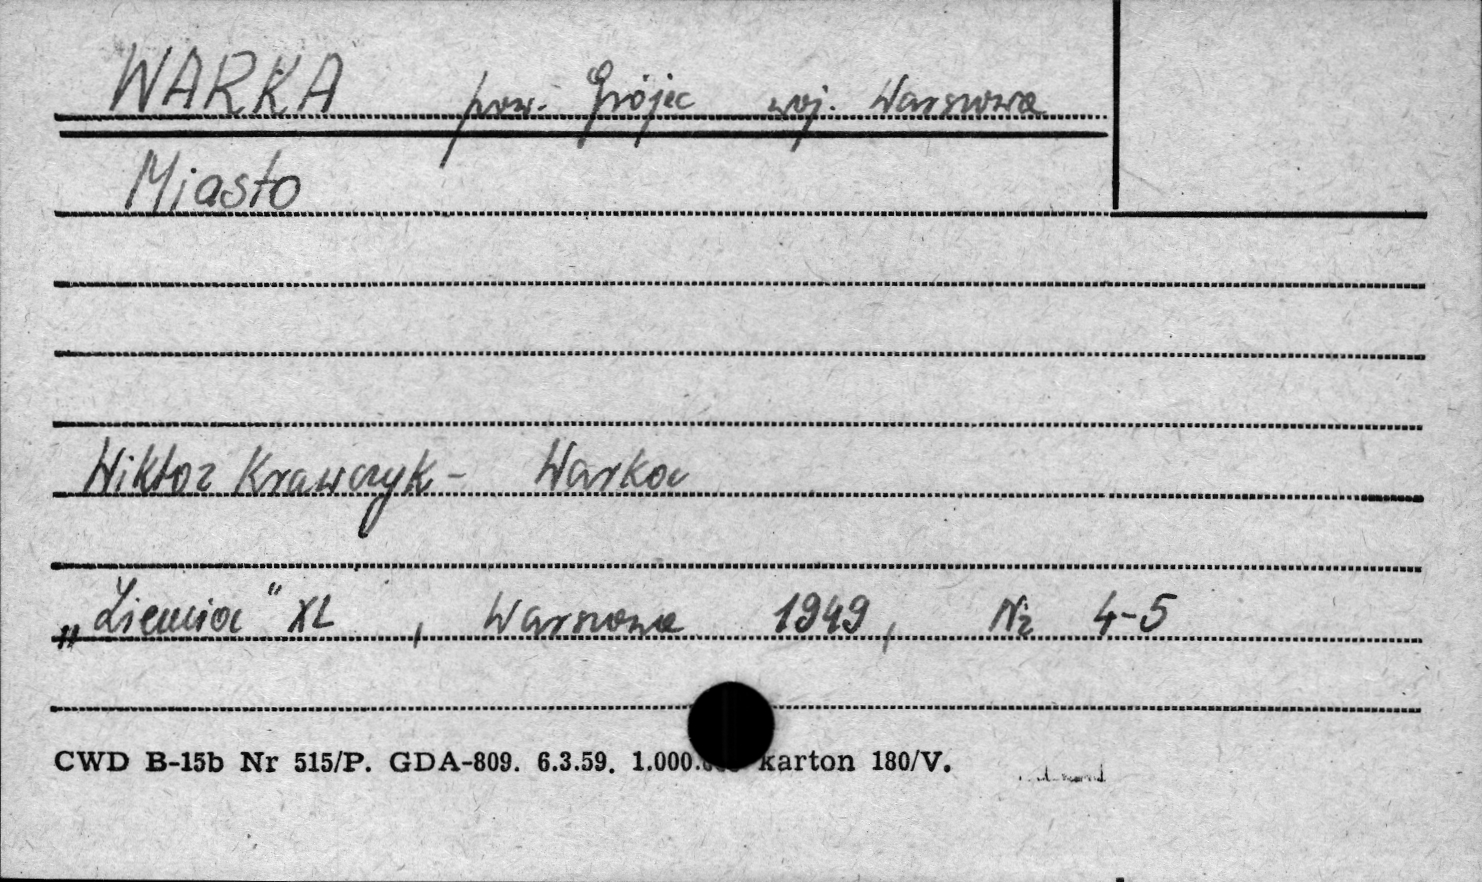 WARKA pow. Grójec woj. Warszowa
Miasto
Wiktor Krawczyk - Warka
„Ziemia" XL , Warszawa 1949, Nr 4-5
CWD B-15b Nr 515/P. GDA-809. 6.3.59. 1.000. karton 180/V.